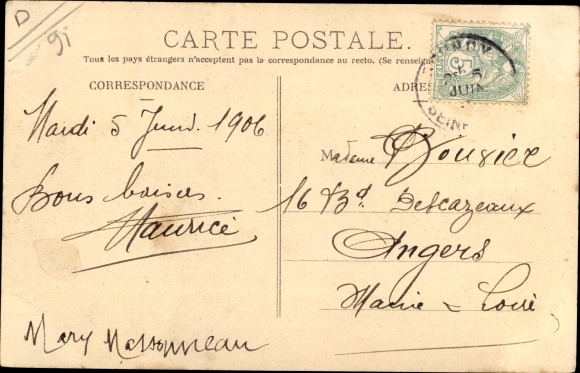 D
91
CARTE POSTALE.
Tous les pays étrangers n'acceptent pas la correspondance au recto. (Se renseigne
CORRESPONDANCE
ADRES
5
5
JUIN
SEINE
Mardi 5 Juin 1906
Bons baisers.
Maurice
Mary Massonneau
Madame
16 Bd. Descazeaux
Angers
Maine & Loire